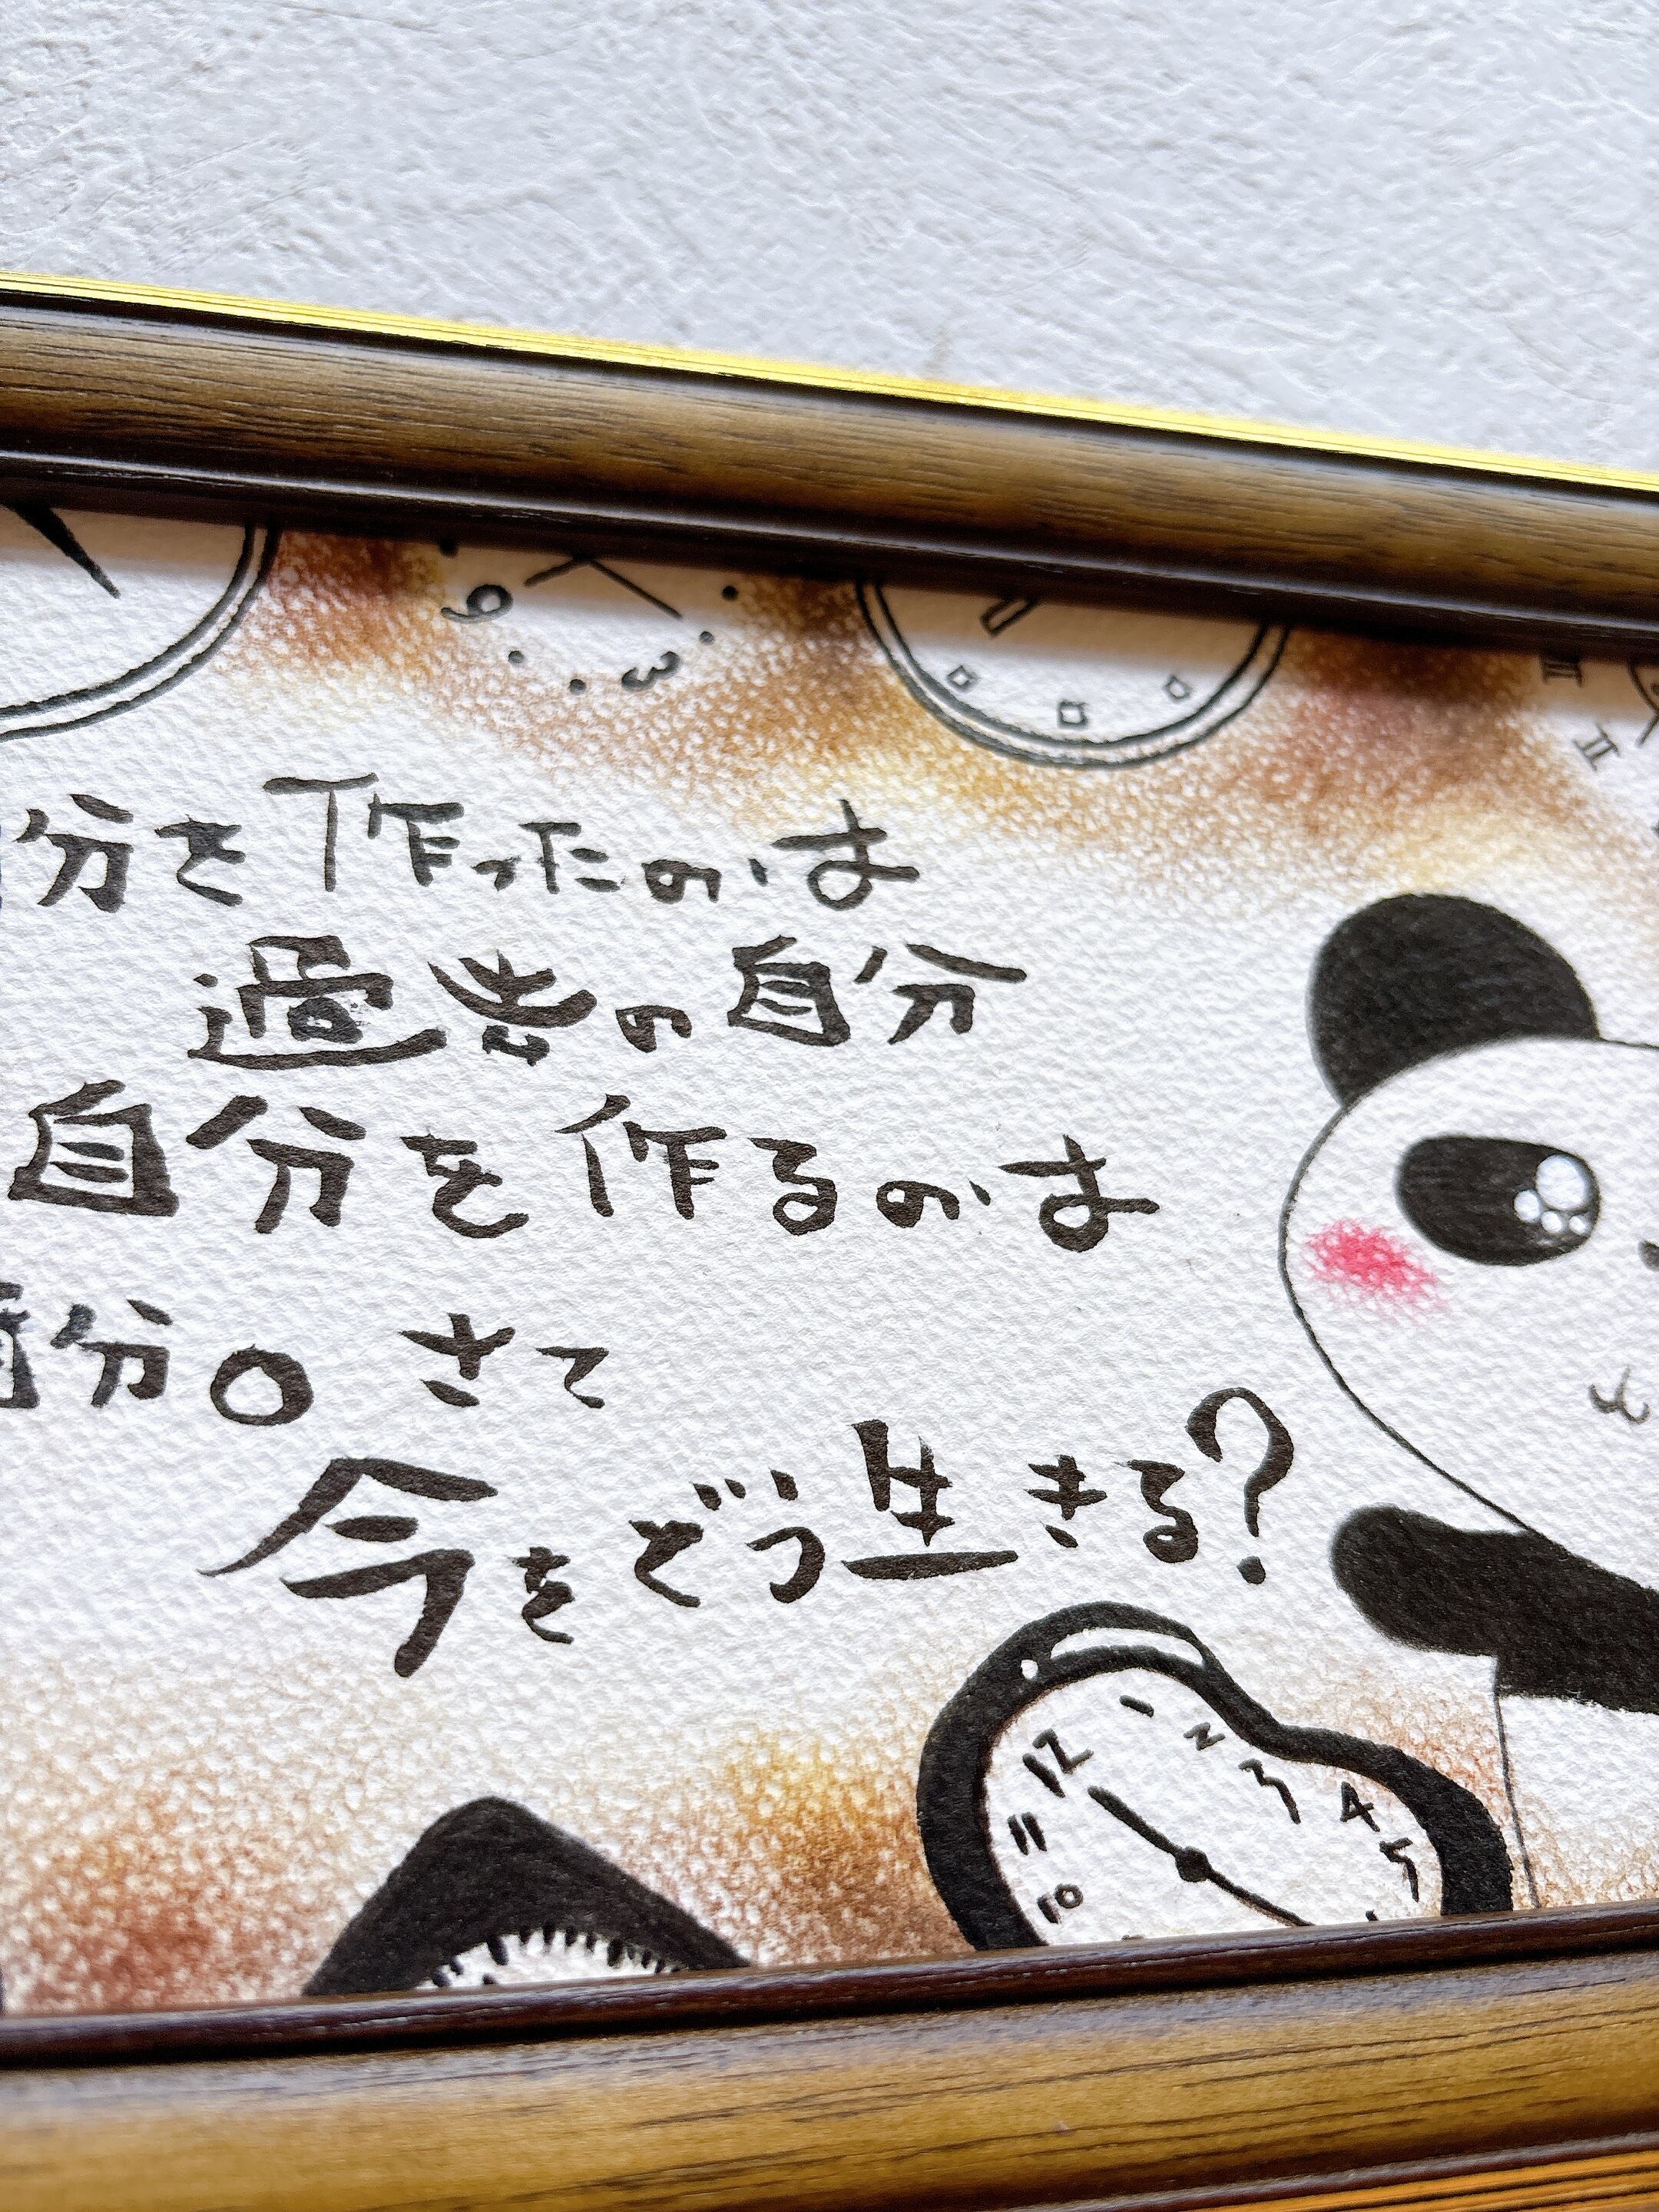 9
3
II
分を作ったのは
過去の自分
自分を作るのは
自分。さて
今をどう生きる?
12 1 2 3 4 5
11
10